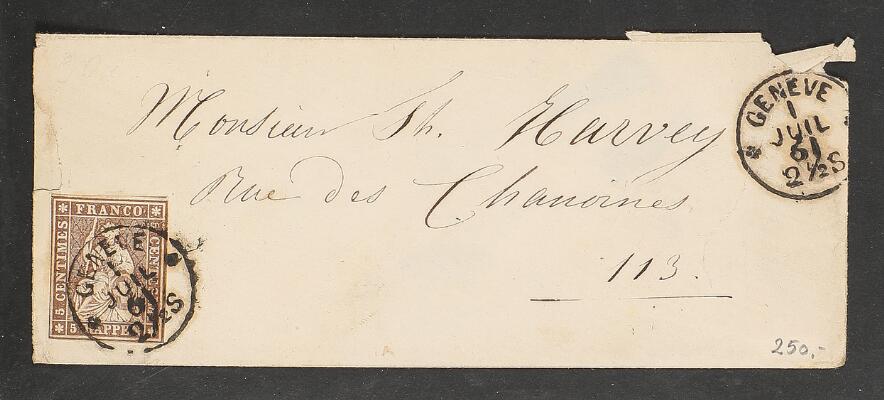 Monsieur Th. Harvey
Rue des Chanoines
113.
GENEVE
1
JUIL
61
2 1/2 S
FRANCO
5 CENTIMES
5 RAPPE
GENEVE
1
JUIL
61
2 1/2 S
250,-